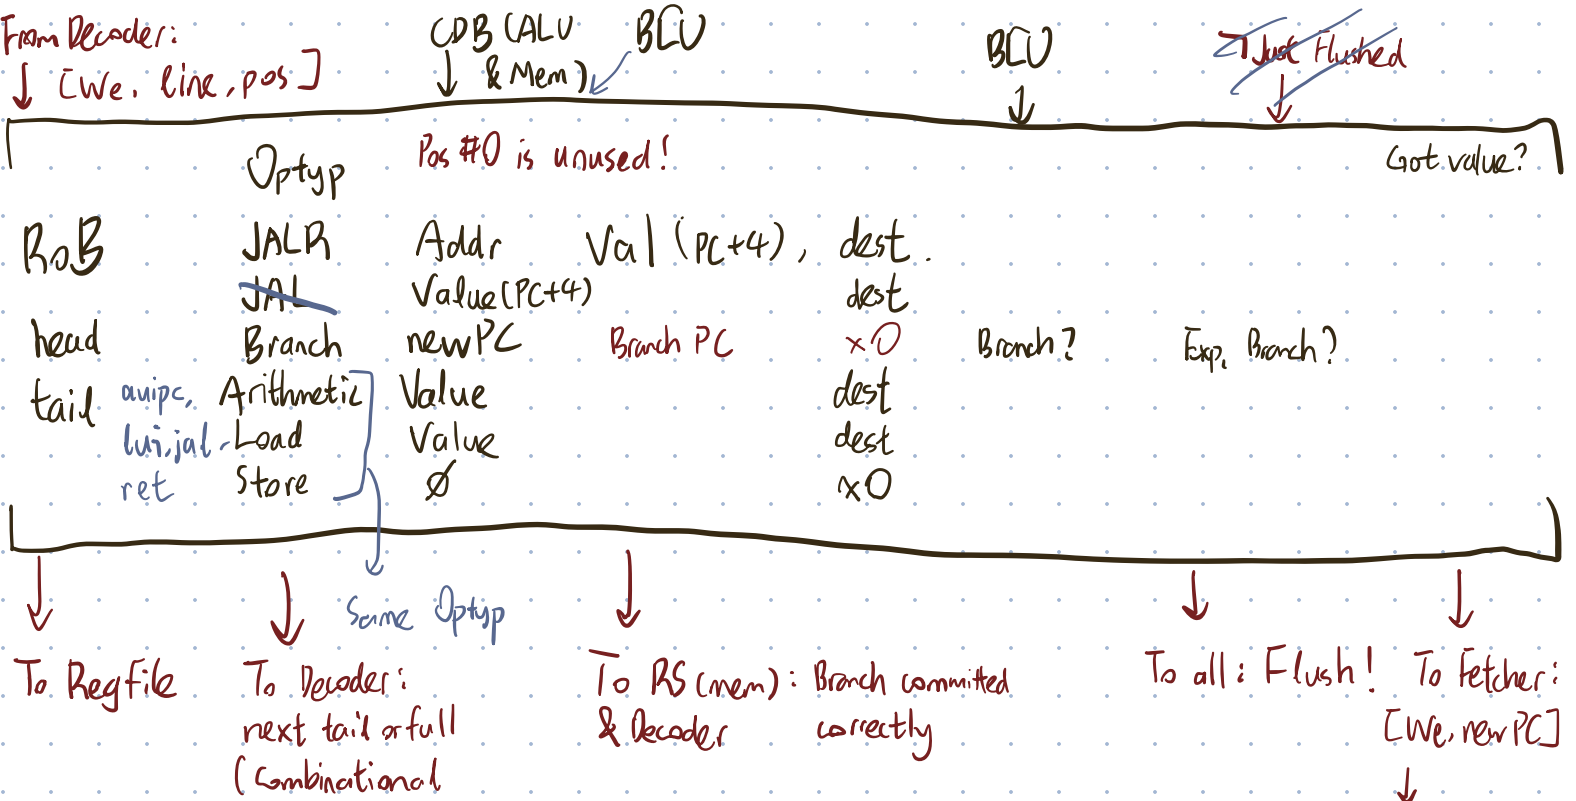 From Decoder:
[We, line, pos]
CDB (ALU
& Mem)
BCU
BCU
Just Flushed
Optyp
Pos #0 is unused!
Got value?
RoB
JALR Addr Val (PC+4), dest.
JAL Value (PC+4) dest
head Branch newPC Branch PC x0 Branch? Exp. Branch?
tail auipc, Arithmetic Value dest
lui, jal, Load Value dest
ret Store Ø x0
Same Optyp
To Regfile
To Decoder:
next tail or full
(Combinational
To RS (mem): Branch committed
& Decoder correctly
To all: Flush!
To Fetcher:
[We, newPC]